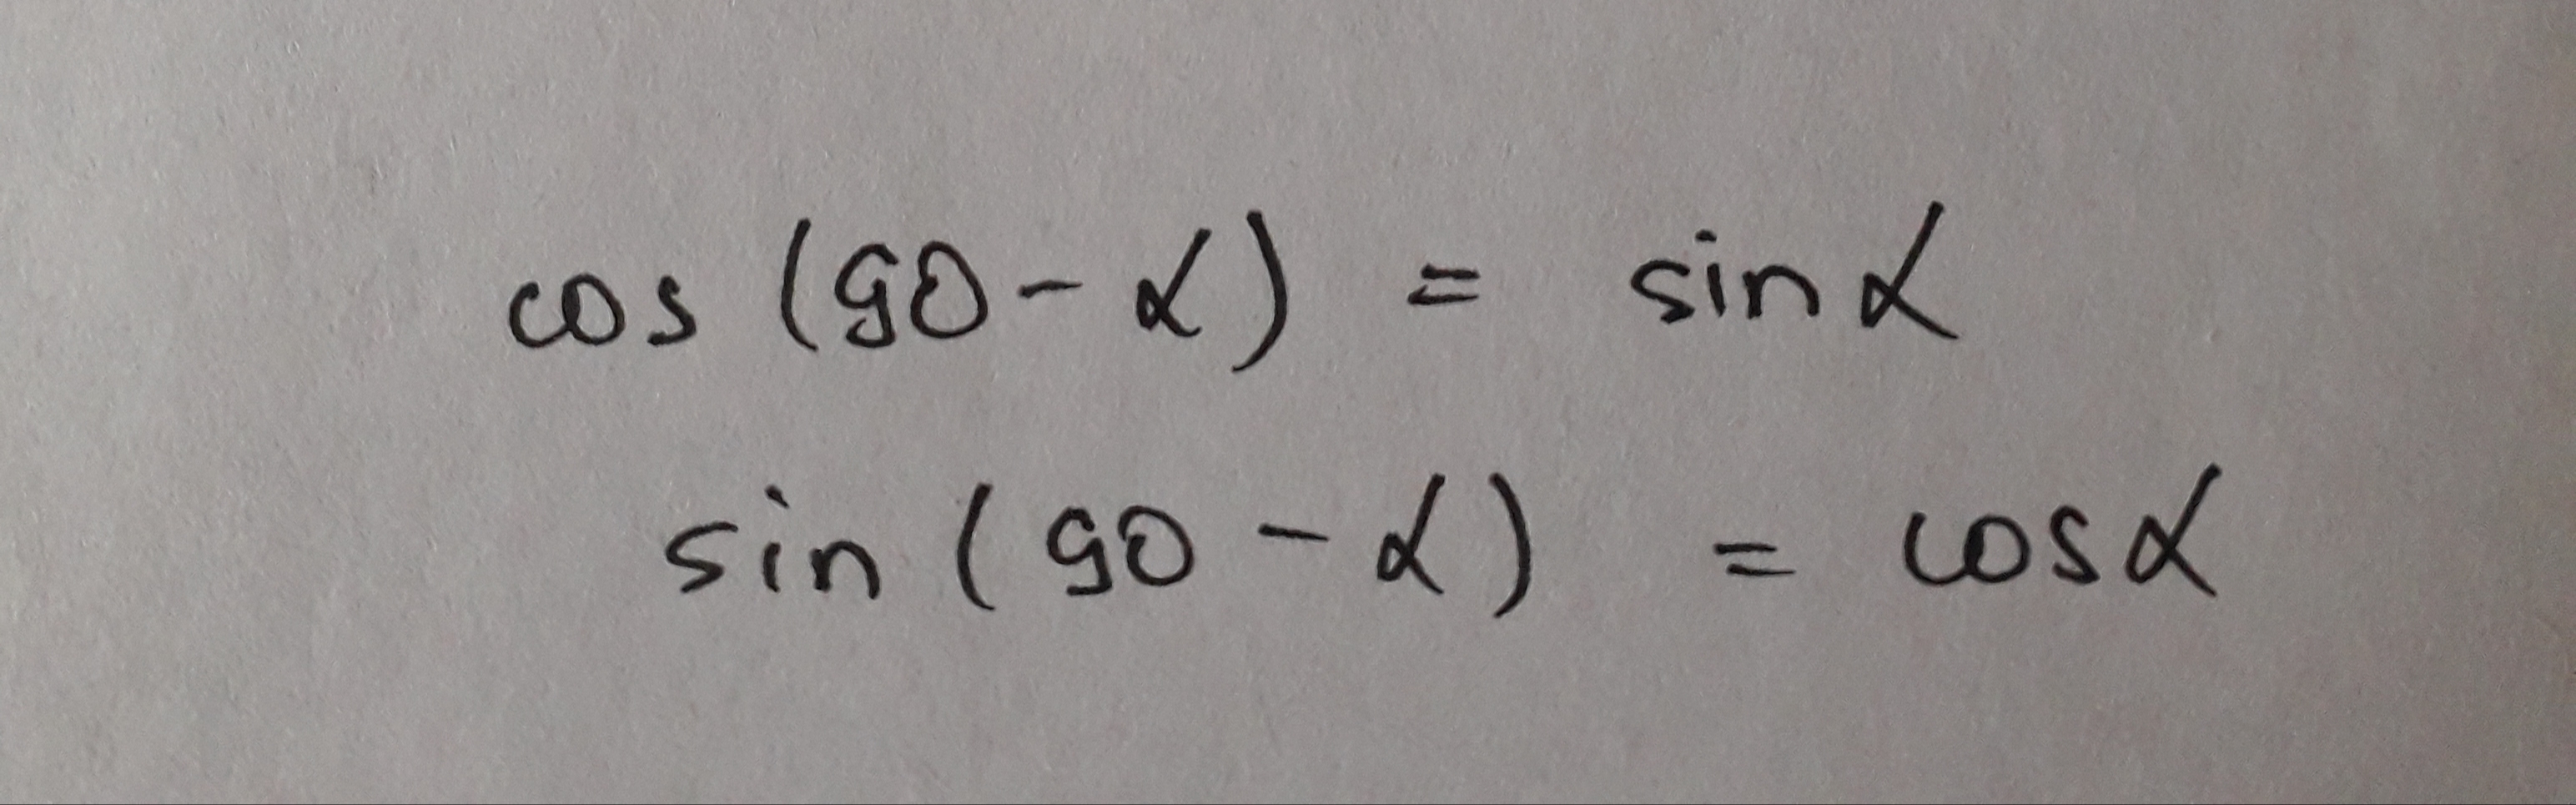 cos (90 - α) = sin α
sin (90 - α) = cos α